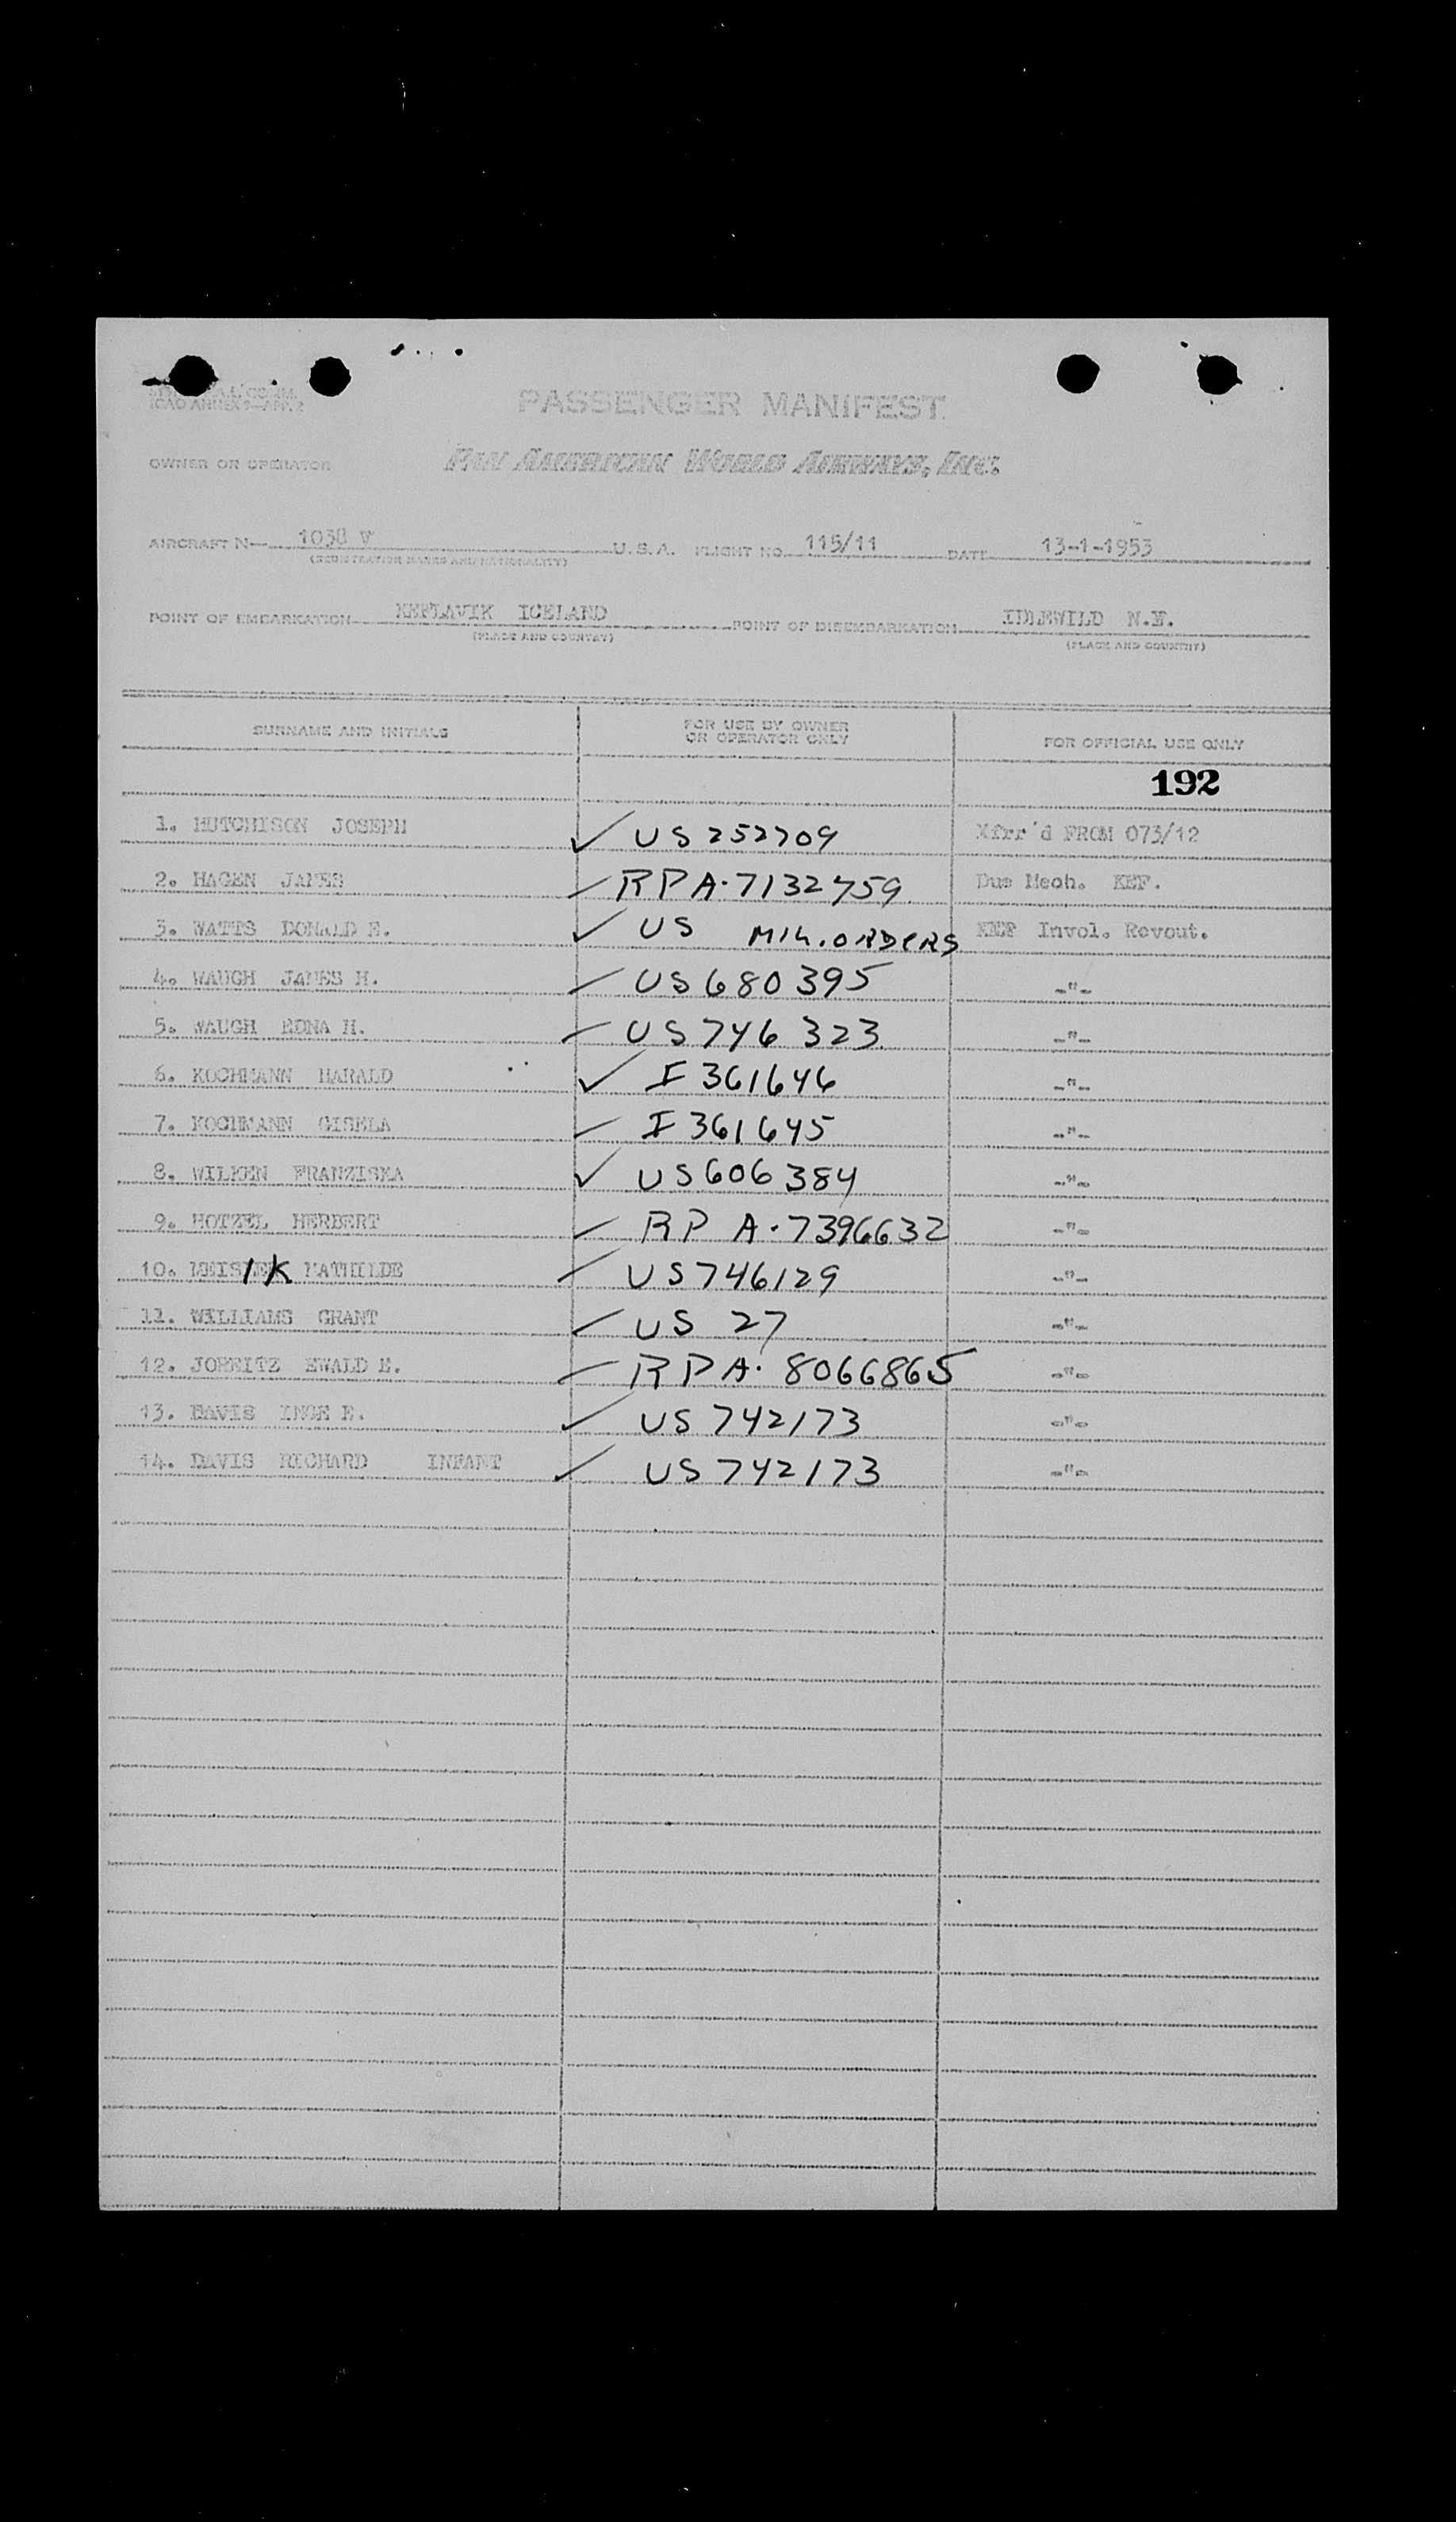 ICAO ANNEX 9—APP. 2
PASSENGER MANIFEST
OWNER OR OPERATOR PAN AMERICAN WORLD AIRWAYS, INC.
AIRCRAFT N— 1038 V U.S.A. FLIGHT NO. 115/11 DATE 13-1-1953
(REGISTRATION MARKS AND NATIONALITY)
POINT OF EMBARKATION KEFLAVIK ICELAND POINT OF DISEMBARKATION IDLEWILD N.Y.
(PLACE AND COUNTRY) (PLACE AND COUNTRY)
SURNAME AND INITIALS FOR USE BY OWNER OR OPERATOR ONLY FOR OFFICIAL USE ONLY
192
1. HUTCHISON JOSEPH ✓ US 252709 Xfrr'd FROM 073/12
2. HAGEN JAMES ✓ RP A.7132759 Due Mech. KEF.
3. WATTS DONALD E. ✓ US MIL.ORDERS KEF Invol. Revout.
4. WAUGH JAMES H. ✓ US 680395 -"-
5. WAUGH EDNA H. ✓ US 746 323 -"-
6. KOCHMANN HARALD ✓ I 361646 -"-
7. KOCHMANN GISELA ✓ I 361645 -"-
8. WILKEN FRANZISKA ✓ US 606384 -"-
9. HOTZEL HERBERT ✓ RP A.7396632 -"-
10. MATHILDE ✓ US 746129 -"-
11. WILLIAMS GRANT ✓ US 27 -"-
12. EWALD E. ✓ RP A. 8066865 -"-
13. DAVIS INGE E. ✓ US 742173 -"-
14. DAVIS RICHARD INFANT ✓ US 742173 -"-